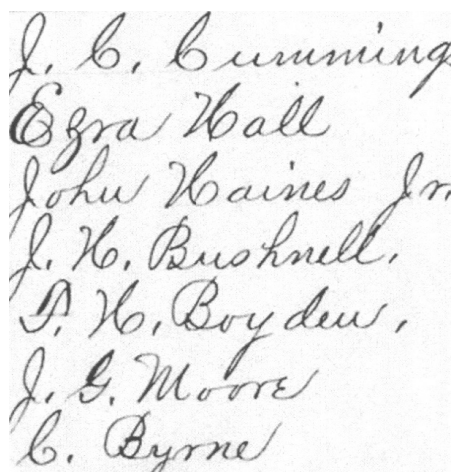 J. C. Cumming
Ezra Hall
John Haines Jr.
J. H. Bushnell.
T. H. Boyden,
J. G. Moore
C. Byrne